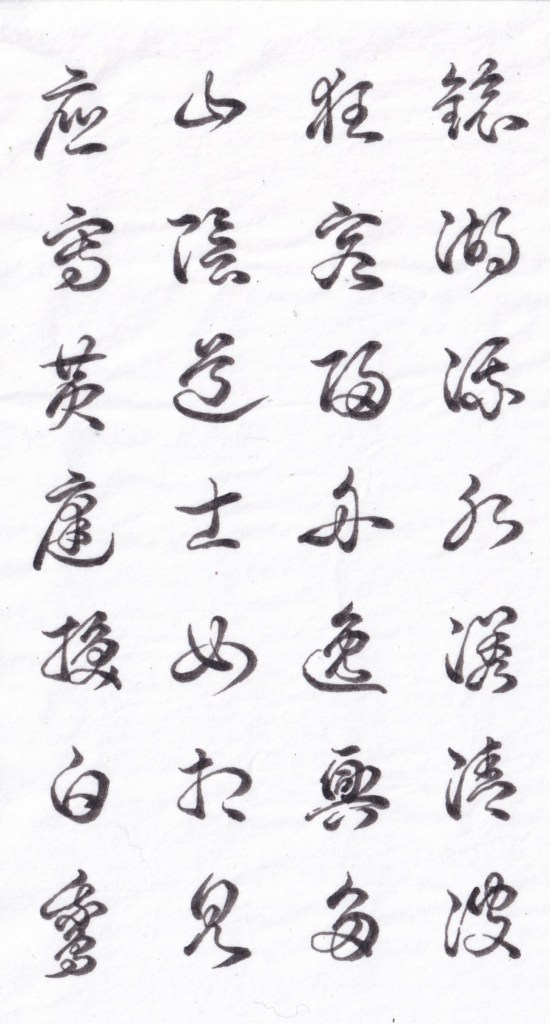 鏡湖流水漾清波
狂客歸舟逸興多
山陰道士如相見
應寫黃庭換白鵞